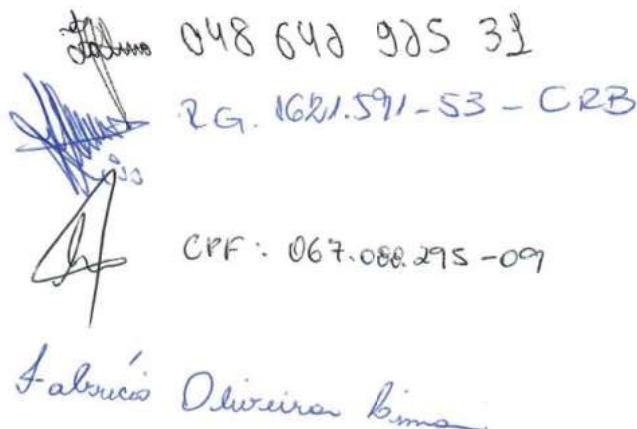 048 640 905 31
R.G. 1621.591-53 - CRB
CPF: 067.088.295-09
Fabrício Oliveira Lima